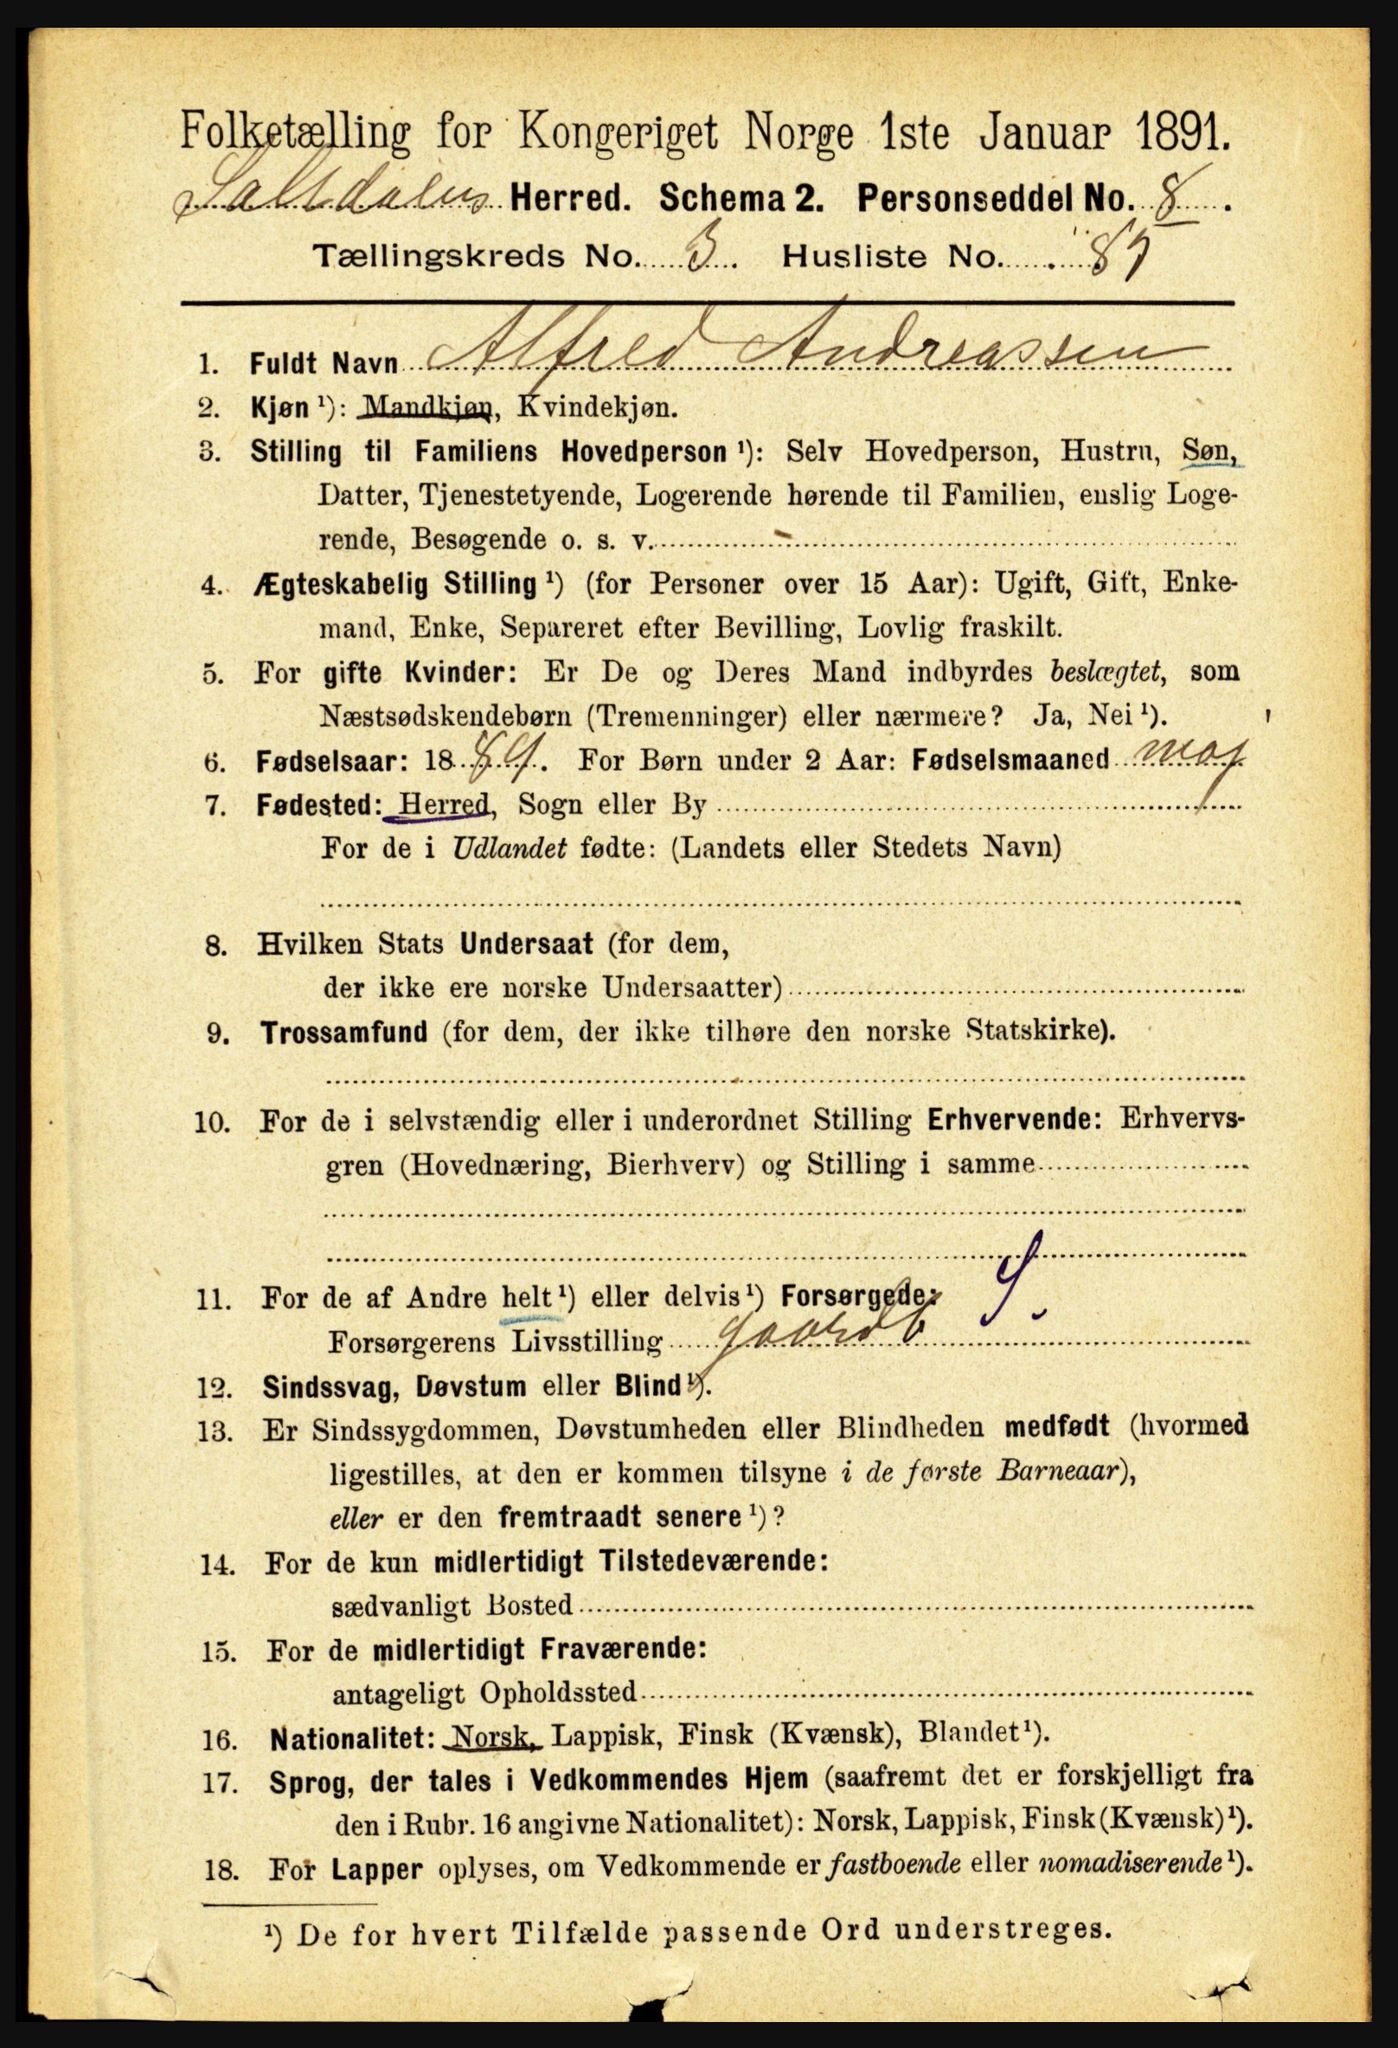 Folketælling for Kongeriget Norge 1ste Januar 1891.
Saltdalens Herred. Schema 2. Personseddel No. 8.
Tællingskreds No. 3. Husliste No. 87
1. Fuldt Navn Alfred Andreassen
2. Kjøn ¹): Mandkjøn, Kvindekjøn.
3. Stilling til Familiens Hovedperson ¹): Selv Hovedperson, Hustru, Søn,
Datter, Tjenestetyende, Logerende hørende til Familien, enslig Loge-
rende, Besøgende o. s. v.
4. Ægteskabelig Stilling ¹) (for Personer over 15 Aar): Ugift, Gift, Enke-
mand, Enke, Separeret efter Bevilling, Lovlig fraskilt.
5. For gifte Kvinder: Er De og Deres Mand indbyrdes beslægtet, som
Næstsødskendebørn (Tremenninger) eller nærmere? Ja, Nei ¹).
6. Fødselsaar: 1889. For Børn under 2 Aar: Fødselsmaaned maj
7. Fødested: Herred, Sogn eller By
For de i Udlandet fødte: (Landets eller Stedets Navn)
8. Hvilken Stats Undersaat (for dem,
der ikke ere norske Undersaatter)
9. Trossamfund (for dem, der ikke tilhøre den norske Statskirke).
10. For de i selvstændig eller i underordnet Stilling Erhvervende: Erhvervs-
gren (Hovednæring, Bierhverv) og Stilling i samme
11. For de af Andre helt ¹) eller delvis ¹) Forsørgede: S.
Forsørgerens Livsstilling Gaardb
12. Sindssvag, Døvstum eller Blind ¹).
13. Er Sindssygdommen, Døvstumheden eller Blindheden medfødt (hvormed
ligestilles, at den er kommen tilsyne i de første Barneaar),
eller er den fremtraadt senere ¹)?
14. For de kun midlertidigt Tilstedeværende:
sædvanligt Bosted
15. For de midlertidigt Fraværende:
antageligt Opholdssted
16. Nationalitet: Norsk, Lappisk, Finsk (Kvænsk), Blandet ¹).
17. Sprog, der tales i Vedkommendes Hjem (saafremt det er forskjelligt fra
den i Rubr. 16 angivne Nationalitet): Norsk, Lappisk, Finsk (Kvænsk) ¹).
18. For Lapper oplyses, om Vedkommende er fastboende eller nomadiserende ¹).
¹) De for hvert Tilfælde passende Ord understreges.